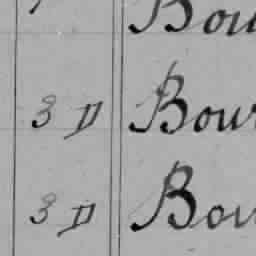 Bou
3 D Bour
3 D Bou